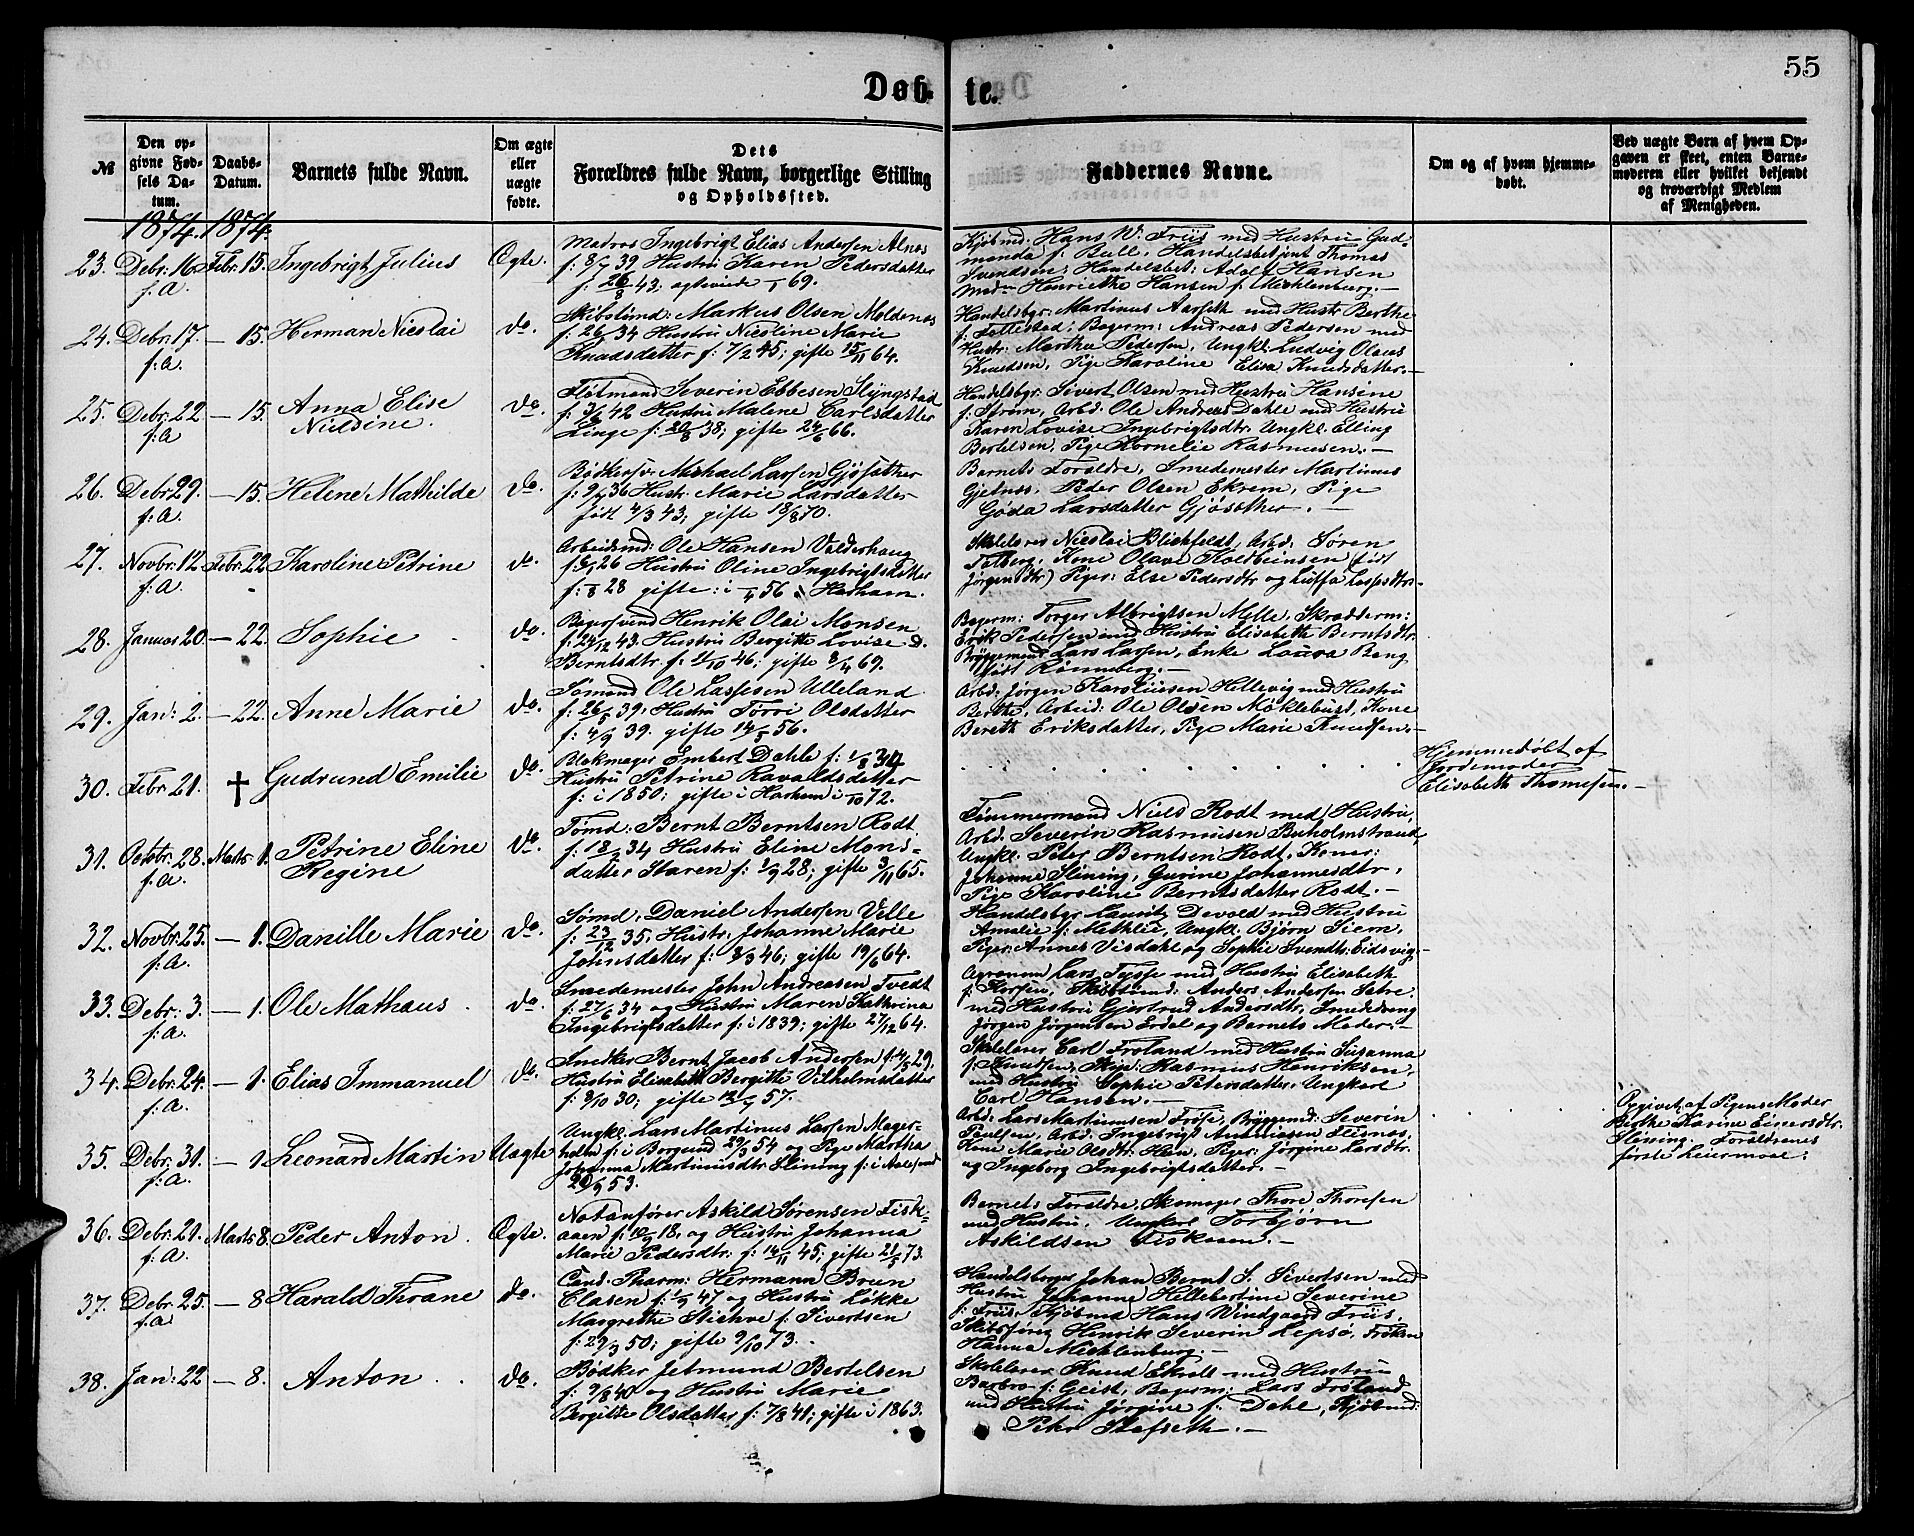 55
Døb- te.
№
Den opgivne Fødsels Datum.
Daabs-Datum.
Barnets fulde Navn.
Om ægte eller uægte fødte.
Dets Forældres fulde Navn, borgerlige Stilling og Opholdssted.
Faddernes Navne.
Om og af hvem hjemmedøbt.
Ved uægte Børn af hvem Opgaven er skeet, enten Barnemoderen eller hvilket bekjendt og troværdigt Medlem af Menigheden.
1874. 1874.
23. Debr: 16 f: A. Febr: 15. Ingebrigt Julius Ægte.
Matros Ingebrigt Elias Andersen Alnæs
f: 8/7 39 Hustru Karen Pedersdatter
f: 26/8 43; ægteviede 69.
Kjøbmd: Hans W. Friis med Hustru Gud-
manda f: Bull, Handelsbetjent Thomas
Svendsen, Handelsbet: Adolf Hansen
Mad: Henriette Hansen f: Mecklenburg.—
24. Debr: 17. f: A. — 15. Herman Nicolai do.
Skibstmd: Markus Olsen Moldenæs
f: 26/6 34 Hustru Nicoline Marie
Knudsdatter f: 7/2 45; gifte 15/11 64.
Handelsbgr: Martinus Aarseth med Hustr: Berthe
f: Tottestad; Bagerm: Andreas Pedersen med
Hustr: Martha Pedersen, Ungkl: Ludvig Olaus
Knudsen, Pige Karoline Elisa Knudsdatter.—
25. Debr: 22 f: A — 15. Anna Elise Nilsine. do.
Fløtmand Severin Ebbesen Slyngstad
f: 3/6 42 Hustru Malene Carlsdatter
Linge f: 20/8 38; gifte 24/6 66.
Handelsbgr: Sivert Olsen med Hustru Hansine
f: Strøm, Arbd: Ole Andreas Dahle med Hustru
Karen Lovise Ingebrigtsdtr: Ungkl: Elling
Bertelsen, Pige Kornelie Rasmusen.—
26. Debr: 29. f: A. — 15. Helene Mathilde do.
Bødkersv: Michael Larsen Gjøsæther
f: 9/7 36 Hustr: Marie Larsdatter
født 4/3 43; gifte 18/8 70.
Barnets Forældre, Smedemester Martinus
Gjelnæs, Peder Olsen Ekrem, Pige
Gjøda Larsdatter Gjøsæther.—
27. Novbr: 12. f: A. Febr: 22 Karoline Petrine do.
Arbeidsmd: Ole Hansen Valderhaug
26 Hustru Oline Ingebrigtsdatter
f: 28 gifte: i 56 Harham.
Skolelærer Nicolai Blichfeldt, Arbd: Søren
Kone Olave Kolbeinsen (født
Jørgensdtr) Piger: Else Pedersdtr og Luffa Lassesdtr.—
28. Januar 20. — 22. Sophie do.
Bagersvend Henrik Olai Monsen
f: 24/12 43. Hustru Bergitte Lovise d.
Berntsdtr: f: 11/10 46; gifte 8/4 69.
Bagerm: Torger Albrigtsen Melle, Skrædderm:
Erik Pedersen med Hustru Elisabeth Berntsdtr.
Bryggemand Lars Larsen, Enke Laura Bang
født Rønneberg.—
29. Jan: 2. — 22. Anne Marie do.
Sømand Ole Lassesen Ulleland
f: 26/5 39; Hustru Torri Olsdatter
f: 4/9 39. gifte 14/5 56.
Arbd: Jørgen Karolius­sen Hellevig med Hustru
Berthe, Arbeid: Ole Olsen Møklebust, Kone
Bereth Eriksdatter, Pige Marie Knudsen.—
30. Febr: 21. † Gudrund Emilie do.
Blokmager Embert Dahle f: 1/8 34
Hustru Petrine Ravaldsdatter
f: i 1850; gifte i Harham i 10 72.
Hjemmedøbt af
Jordemoder
Elisabeth Thomesen.—
31. Octobr: 28. f: A. Marts 1. Petrine Eline Regine do.
Tømd: Bernt Berntsen Rodt
f: 18/2 34 Hustru Eline Mons-
datter Staren f: 1/9 28; gifte 3/11 65.
Timmermand Nils Rodt med Hustru,
Arbd: Severin Rasmusen Buholmstrand,
Ungkl: Peter Berntsen Rodt, Koner:
Johanne Slining, Gurine Johannesdtr,
Pige Karoline Berntsdatter Rodt.—
32. Novbr: 25. f: A. — 1. Danille Marie do.
Sømd: Daniel Andersen Velle
f: 23/12 35. Hustr: Johanne Marie
Johnsdatter f: 8/3 46; gifte 19/6 64.
Handelsbgr Lauritz Devold med Hustru
Amalie f: Methlie, Ungkl: Bjørn Siem,
Piger: Annes Visdahl og Sophie Svendtr: Eidsvig.—
33. Debr: 3. f: A. — 1. Ole Mathæus do.
Smedemester John Andreasen Tvedt
f: 27/6 34 og Hustru Maren Kathrina
Ingebrigtsdatter f: i 1839; gifte 27/12 64.
Agronom Lars Fysse med Hustru Elisabeth
f: Korsen, Skibstmd: Anders Andersen Sætre
med Hustru Gjertrud Andersdtr, Smeddreng
Jørgen Jørgensen Erdal og Barnets Moder.—
34. Debr: 24. f: A. — 1. Elias Immanuel do.
Snedker Bernt Jacob Andersen f: 4/3 29,
Hustru Elisabeth Bergitte Vilhelmsdatter
f: 8/10 30; gifte 13/9 57.
Skolelærer Carl Frøland med Hustru Susanna
f: Knudsen, Rasmus Henriksen,
med Hustru Sophie Petersdatter, Ungkarl
Carl Hansen.—
35. Debr: 31. f: A. — 1 Leonard Martin Uægte
Ungkl: Lars Martinus Larsen Mager-
holm f: i Borgund 29/3 54 og Pige Martha
Johanna Martinusdtr Slining f: i Aalesund
20/9 53.
Arbd: Lars Martinussen Frøse, Bryggemd: Severin
Paulsen, Arbd: Ingebrigt Ananiasen Flemes,
Kone Marie Olsdtr: Hein, Piger: Jørgine Larsdtr.
og Ingeborg Ingebrigtsdatter.—
Opgivet af Pigens Moder
Berthe Karine Einersdtr.
Slining. Forældrenes
første Leiermaal.
36. Debr: 21. f: A. Marts 8. Peder Anton. Ægte.
Notanfører Askild Sørensen Fisk-
aaen f: 10/9 18, og Hustru Johanna
Marie Pedersdtr: f: 14/11 45; gifte 21/5 73.
Barnets Forældre, Skomager Thore Thoresen
med Hustru, Ungkarl Torbjørn
Askildsen Fiskaaen.—
37. Debr: 25. f: A — 8 Harald Thrane do.
Cand: Pharm: Hermann Brun
Clasen f: 1/9 47 og Hustru Løkke
Margrethe Stichoe f: Sivertsen
f: 29/3 50; gifte 9/10 73.
Handelsborger Johan Bernt S. Sivertsen med
Hustru Johanne Hellebertine Severine
f: Friis, Kjøbmd Hans Windgaard Friis,
Skibsfører Henrik Severin Lepsø, Frøken
Hanna Mecklenburg.—
38. Jan: 22 — 8. Anton do.
Bødker Jetmund Bertelsen
f: 9/8 40 og Hustru Marie
Bergitte Olsdatter f: 7/8 41; gifte i 1863.
Skolelærer Knud Ekroll med Hustru
Barbro f: Geist, Bagerm: Lars Frøland
med Hustru Jørgine f: Dahl, Kjøbmd:
Peter Stafseth.—